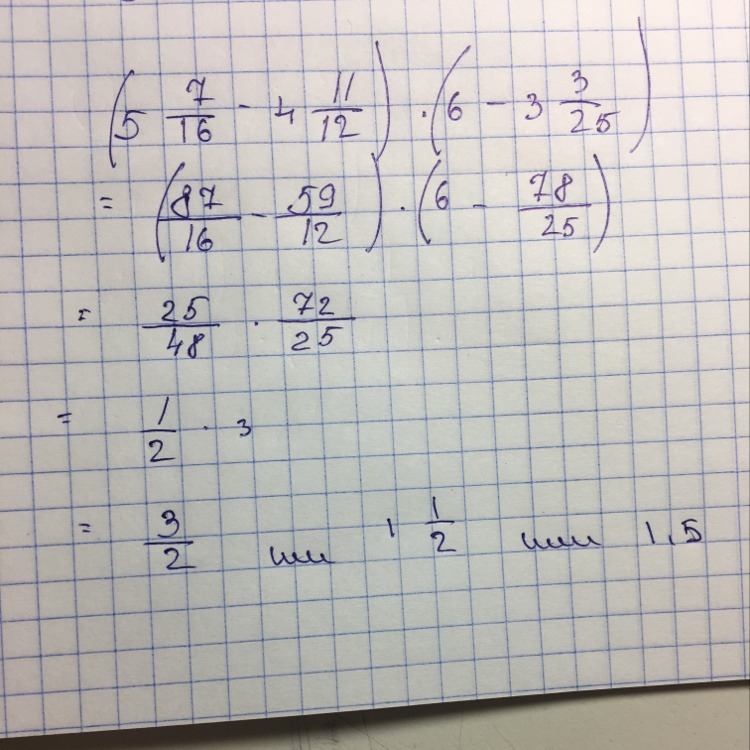 (5 7/16 - 4 11/12) · (6 - 3 3/25)
= (87/16 - 59/12) · (6 - 78/25)
= 25/48 · 72/25
= 1/2 · 3
= 3/2 или 1 1/2 или 1,5